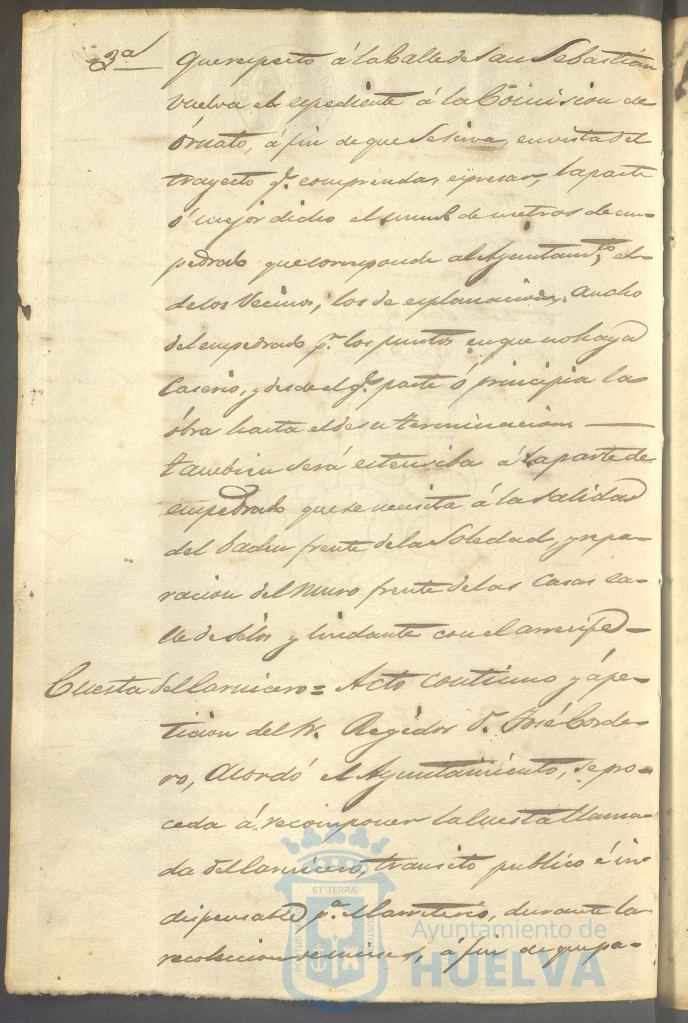 3ª Que respecto á la Calle de San Sebastian
vuelva el espediente á la Comision de
órnato, á fin de que se sirva, en vista del
trayecto q.e comprenda, espresar, la parte
ó mejor dicho el num.o de metros de em-
pedrado que corresponde al Ayuntam.to, el
de los Vecinos, los de esplanacion, ancho
del empedrado p.r los puntos en que no haya
Caserio, y desde el q.e parte ó principia la
óbra hasta el de su terminacion
tambien será estensiba á la parte de
empedrado que se necesita á la salida
del baden frente de la Soledad, y repa-
racion del Muro frente de las Casas ca-
lle de y lindante con el arrecife
Cuesta del Carnicero = Acto continuo y á pe-
ticion del Sr. Regidor D. José Corde-
ro, Acordó el Ayuntamiento, se pro-
ceda á recomponer la Cuesta llama-
da del Carnicero, transito publico é in
dispensable p.a durante la
recoleccion de mieses, á fin de que pa-
ET TERRÆ
PORTUS
Ayuntamiento de
HUELVA